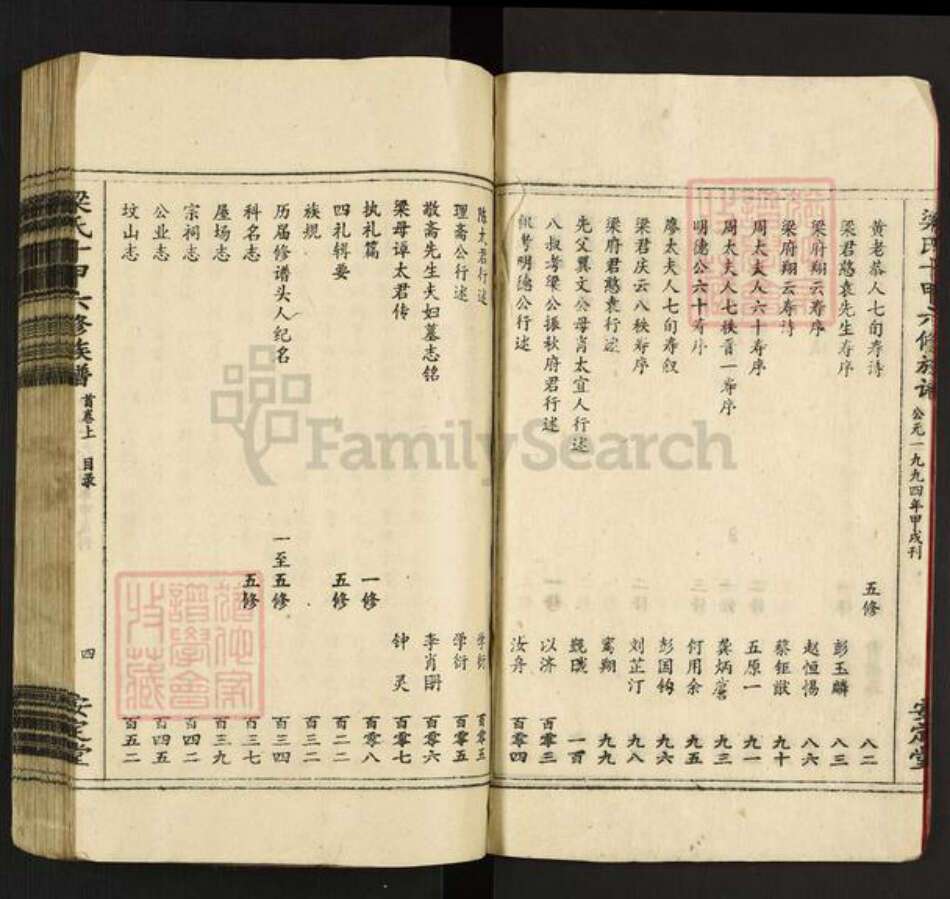 梁氏十甲六修族谱 公元一九九四年甲戌刊 安定堂
黄老恭人七旬寿诗 五修 八二
梁君憨袁先生寿序 彭玉麟 八三
梁府翔云寿序 赵恒惕 八六
梁府翔云寿诗 蔡钜猷 九十
周太夫人六十寿序 五原一 九一
周太夫人七秩晋一寿序 龚炳 九三
明德公六十寿序 何用余 九五
廖太夫人七旬寿叙 彭国钧 九六
梁君庆云八秩寿序 刘芷汀 九八
梁府君憨袁行述 鸾翔 九九
先父翼文公母肖太宜人行述 一百
八叔考梁公振秋府君行述 以济 百零三
明德公行述 汝舟 百零四
陈太君行述 学衍 百零五
理斋公行述 学衍 百零五
敬斋先生夫妇墓志铭 李肖聃 百零六
梁母谭太君传 钟灵 百零七
执礼篇 一修 百零八
四礼辑要 五修 百二二
族规 百三二
历届修谱头人纪名 一至五修 百三四
科名志 五修 百三七
屋场志 百三九
宗祠志 百四二
公业志 百四五
坟山志 百五二
梁氏十甲六修族谱 首卷上 目录 四 安定堂
FamilySearch